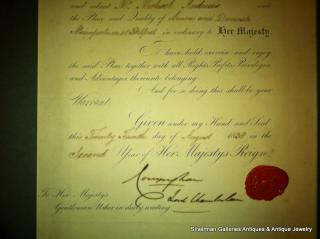 and admit Mr. Michael Andrews into
the Place and Quality of Linen and Damask
Manufacturer at Belfast in ordinary to Her Majesty.
To have, hold, exercise and enjoy
the said Place together with all Rights Profits Privileges
and Advantages thereunto belonging.
And for so doing this shall be your
Warrant.
Given under my Hand and Seal
this Twenty Fourth day of August 1838 in the
Second Year of Her Majestys Reign
Conyngham
Lord Chamberlain
To Her Majestys
Gentleman Usher in daily waiting
Silverman Galleries Antiques & Antique Jewelry